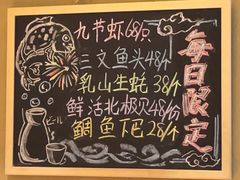 九节虾68/只
三文鱼头48/个
乳山生蚝38/个
鲜活北极贝48/份
鲷鱼下巴28/个
每日限定
ビール